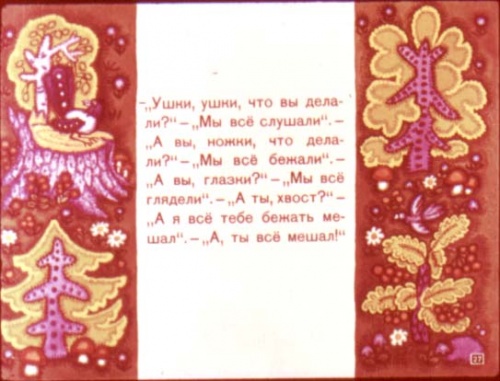 –„Ушки, ушки, что вы дела-
ли?“ – „Мы всё слушали“. –
„А вы, ножки, что дела-
ли?“ – „Мы всё бежали“. –
„А вы, глазки?“ – „Мы всё
глядели“. – „А ты, хвост?“ –
„А я всё тебе бежать ме-
шал“. – „А, ты всё мешал!“